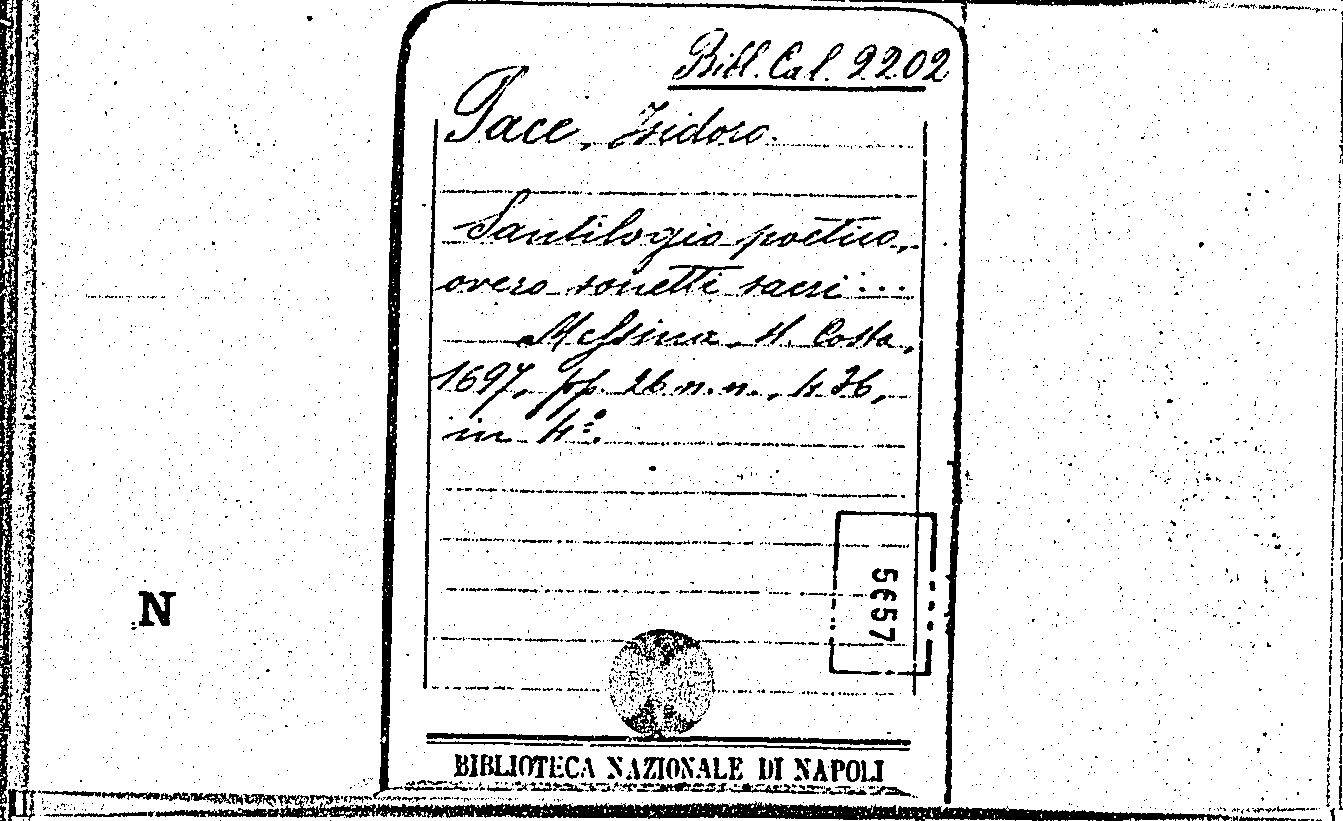 Bibl. Cal. 2202
Pace, Isidoro.
Santilogio poetico,
overo sonetti sacri...
Messina, Costa,
1697, pp. 26 n.n., 436,
in 4º.
N
5657
BIBLIOTECA NAZIONALE DI NAPOLI